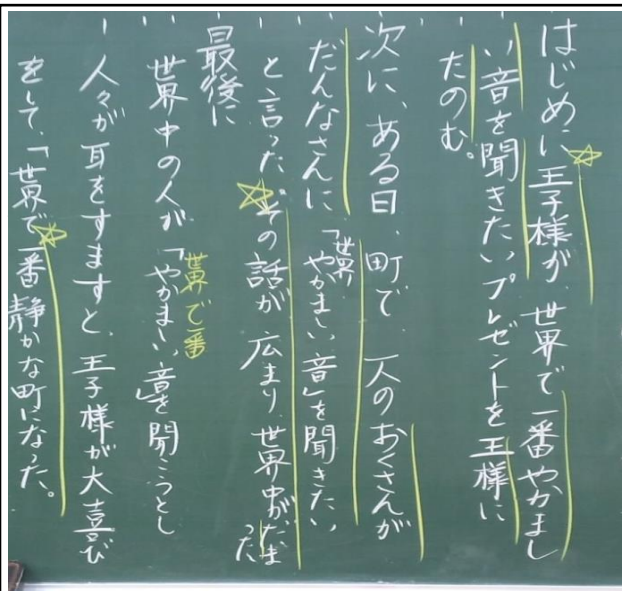 はじめに王子様が、世界で一番やかまし
い音を聞きたいプレゼントを王様に
たのむ。
次に、ある日、町で一人のおくさんが
だんなさんに「世界一やかましい音」を聞きたい
と言った。その話が広まり、世界中がだまった
最後に
世界で一番
世界中の人が「やかましい音」を聞こうとし
人々が耳をすますと、王子様が大喜び
をして、「世界で一番静かな町になった。